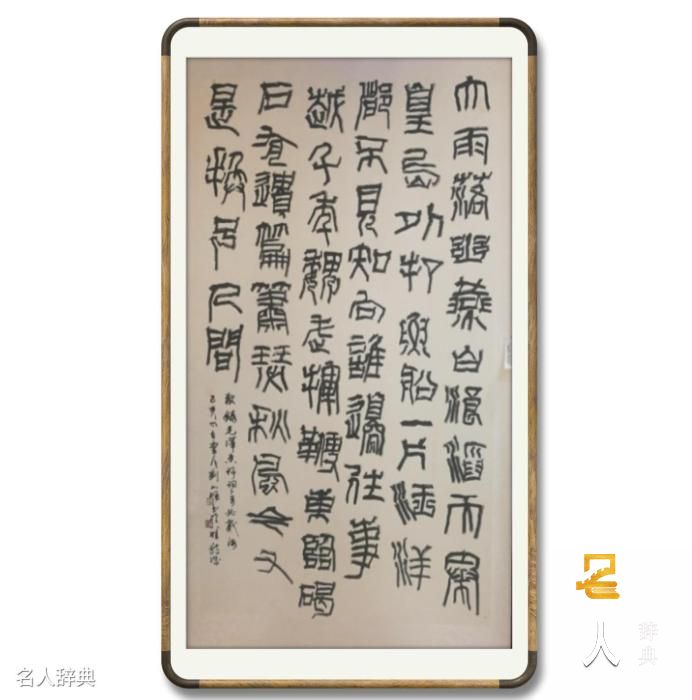 大雨落幽燕白浪滔天秦
皇島外打魚船一片汪洋
都不見知向誰邊往事
越千年魏武揮鞭東臨碣
石有遺篇蕭瑟秋風今又
是換了人間
敬錄毛澤東
己亥
名人辞典
名人辞典